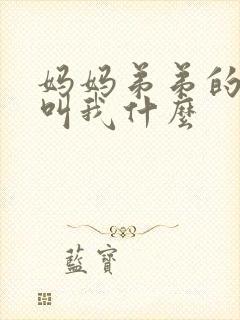 妈妈弟弟的
叫我什麼
藍寶